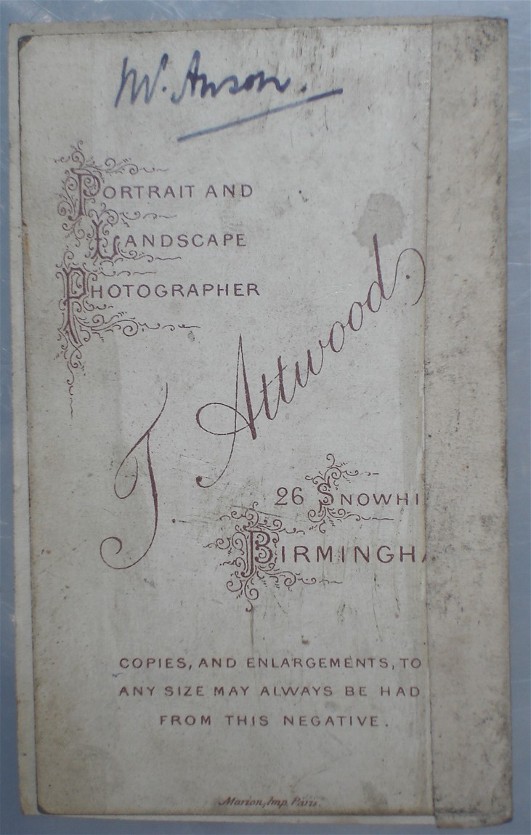 Mr. Anson.
PORTRAIT AND
LANDSCAPE
PHOTOGRAPHER
T. Attwood.
26 SNOWHI
BIRMINGH
COPIES, AND ENLARGEMENTS, TO
ANY SIZE MAY ALWAYS BE HAD
FROM THIS NEGATIVE.
Marion, Imp. Paris.